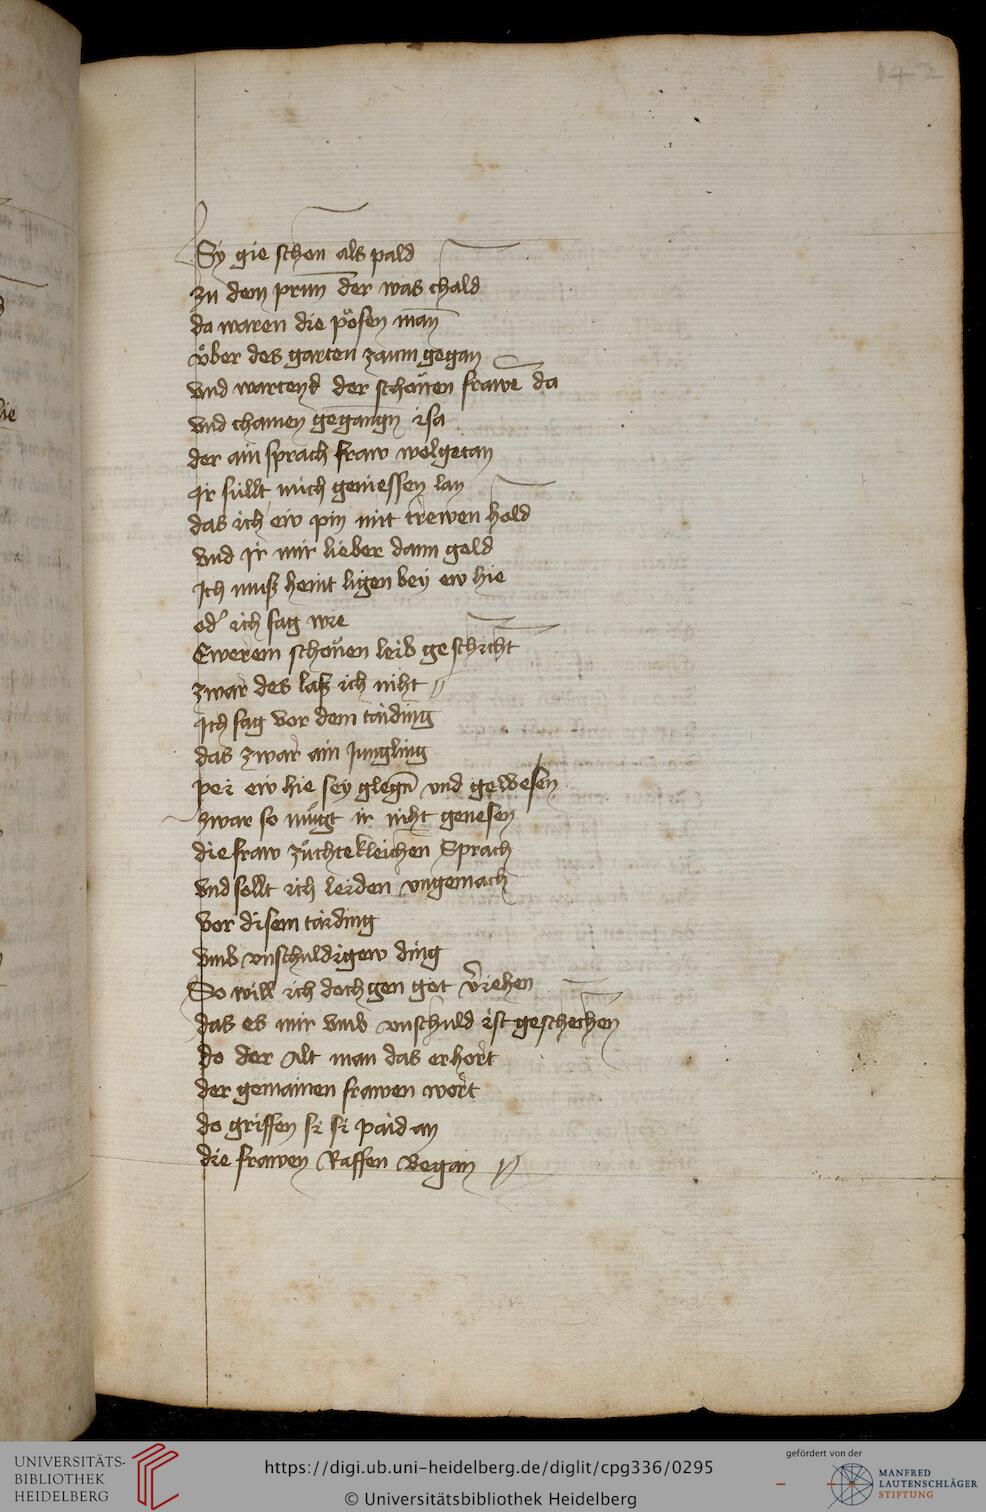 142
Sy gie schon als pald
zu dem prun̄ der was chald
da waren die pösen man
vͤber des garten zaun gegan
vnd wartend der schönen frawē da
vnd chamen gegangn̄ isa
der ain sprach fraw wolgetan
Ir süllt mich geniessen lan
das ich ew pin mit trewen hold
vnd Ir mir lieber dann gold
Ich muß heint ligen bey ew hie
od' ich sag wie
Ewerem schönen leib geschicht
zwar des laß ich niht //
Ich sag vor dem taiding
das zwar ain Jungling
pei ew hie sey glegn̄ vnd gewesen
zwar so mügt ir niht genesen
die fraw züchtekleichen Sprach
vnd sollt ich leiden vngemach
vor disem taiding
vmb vnschuldigew ding
So will ich doch gen got v̄iehen
das es mir vmb vnschuld ist geschechen
do der Alt man das erhort
der gemainen frawen wort
do griffen si si paid an
die frawen Raffen began //
die
UNIVERSITÄTS-
BIBLIOTHEK
HEIDELBERG
https://digi.ub.uni-heidelberg.de/diglit/cpg336/0295
© Universitätsbibliothek Heidelberg
gefördert von der
MANFRED
LAUTENSCHLÄGER
STIFTUNG